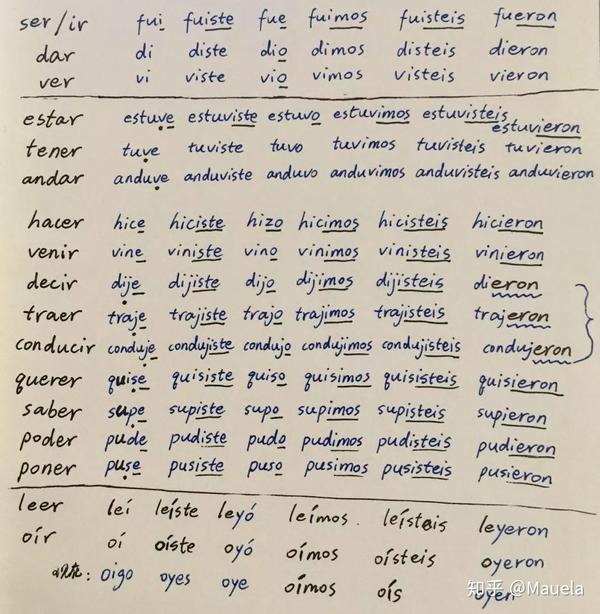 ser/ir fui fuiste fue fuimos fuisteis fueron
dar di diste dio dimos disteis dieron
ver vi viste vio vimos visteis vieron
estar estuve estuviste estuvo estuvimos estuvisteis estuvieron
tener tuve tuviste tuvo tuvimos tuvisteis tuvieron
andar anduve anduviste anduvo anduvimos anduvisteis anduvieron
hacer hice hiciste hizo hicimos hicisteis hicieron
venir vine viniste vino vinimos vinisteis vinieron
decir dije dijiste dijo dijimos dijisteis dieron
traer traje trajiste trajo trajimos trajisteis trajeron
conducir conduje condujiste condujo condujimos condujisteis condujeron
querer quise quisiste quiso quisimos quisisteis quisieron
saber supe supiste supo supimos supisteis supieron
poder pude pudiste pudo pudimos pudisteis pudieron
poner puse pusiste puso pusimos pusisteis pusieron
leer leí leíste leyó leímos. leísteis leyeron
oír oí oíste oyó oímos oísteis oyeron
oigo oyes oye oímos oís oyen
知乎 @Mauela